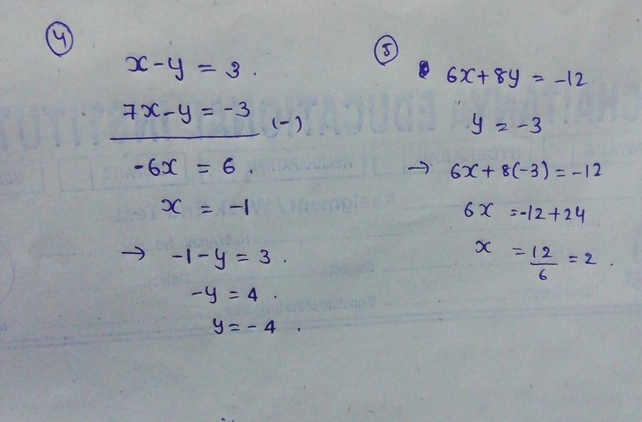 4
x - y = 3.
7x - y = -3 (-)
-6x = 6.
x = -1
→ -1 - y = 3.
-y = 4.
y = -4.
5
6x + 8y = -12
y = -3
→ 6x + 8(-3) = -12
6x = -12 + 24
x = 12/6 = 2.